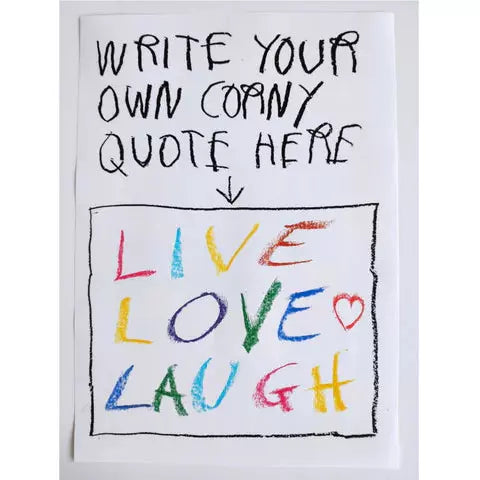 WRITE YOUR
OWN CORNY
QUOTE HERE
LIVE
LOVE
LAUGH